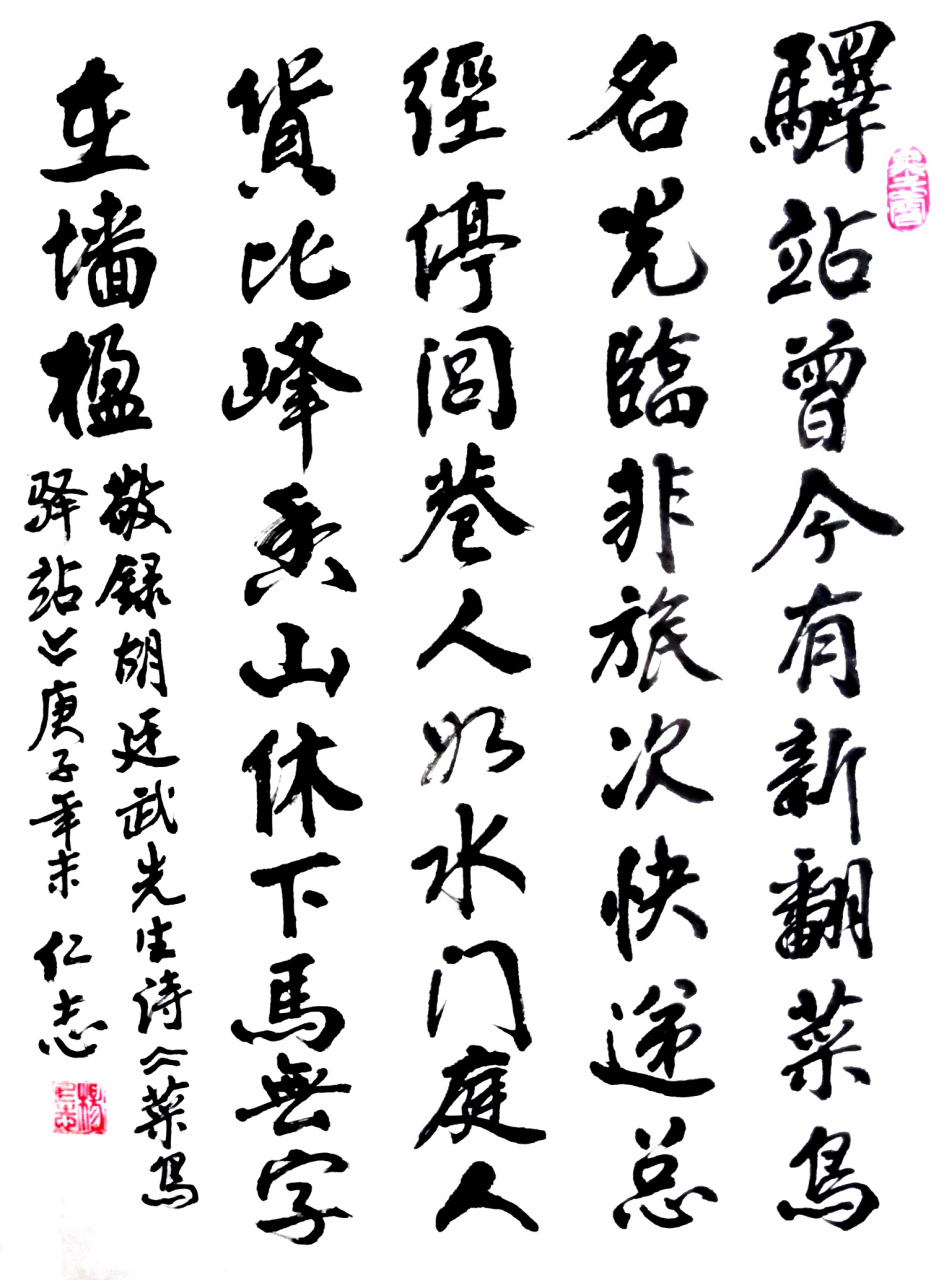 驛站曾今有新翻菜鸟
名光臨非旅次快递总
經停闾巷人如水门庭人
貨比峰山休下馬無字
在墙楹
敬録胡廷武先生诗《菜鸟
驿站》庚子年末 仁志
杨仁志